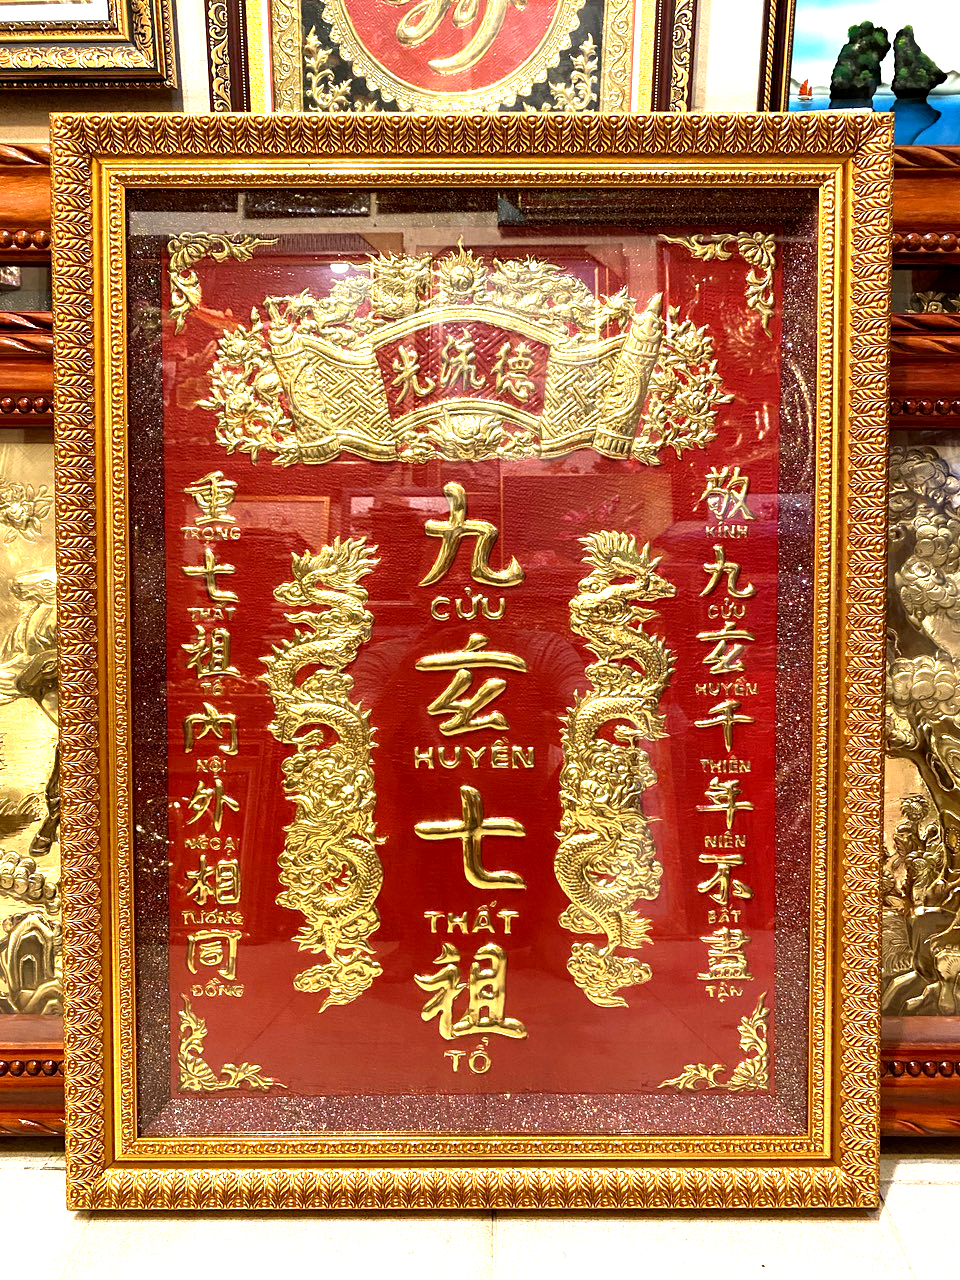 德流光
敬
KÍNH
九
CỬU
玄
HUYỀN
千
THIÊN
年
NIÊN
不
BẤT
盡
TẬN
九
CỬU
玄
HUYỀN
七
THẤT
祖
TỔ
重
TRỌNG
七
THẤT
祖
TỔ
內
NỘI
外
NGOẠI
相
TƯỚNG
同
ĐỒNG